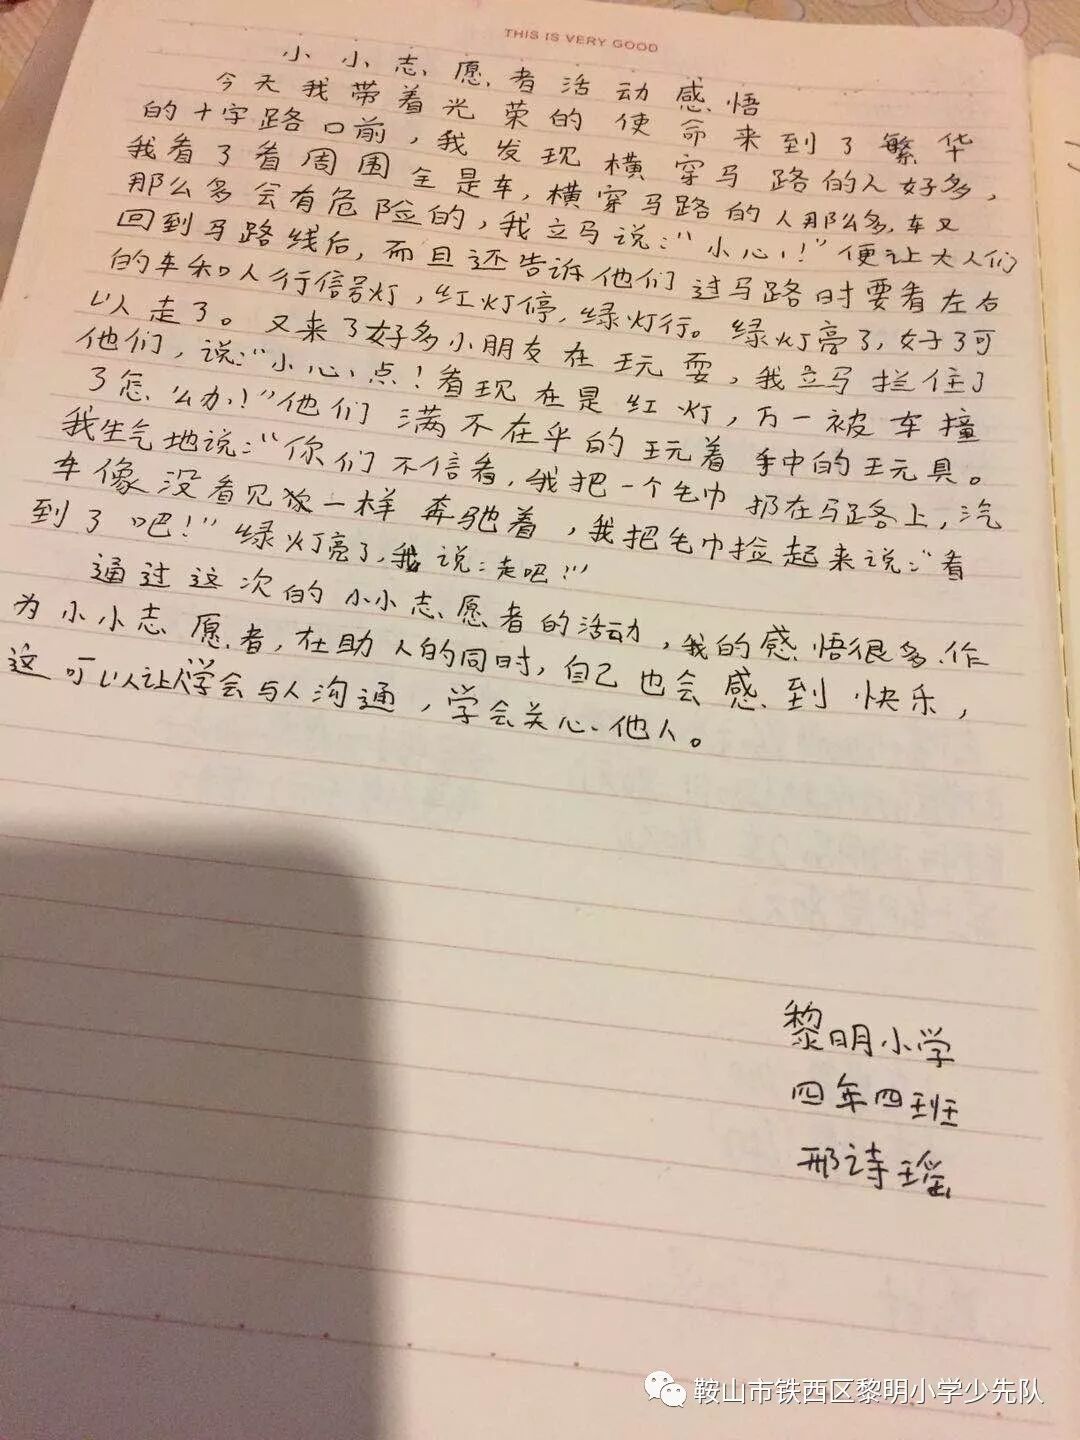 THIS IS VERY GOOD
小小志愿者活动感悟
今天我带着光荣的使命来到了繁华
的十字路口前，我发现横穿马路的人好多，
我看了看周围全是车，横穿马路的人那么多，车又
那么多会有危险的，我立马说：“小心！”便让大人们
回到马路线后，而且还告诉他们过马路时要看左右
的车和人行信号灯，红灯停，绿灯行。绿灯亮了，好了可
以走了。又来了好多小朋友在玩耍，我立马拦住了
他们，说：“小心点！看现在是红灯，万一被车撞
了怎么办！”他们满不在乎的玩着手中的玩具。
我生气地说：“你们不信看，我把一个毛巾扔在马路上，汽
车像没看见似一样奔驰着，我把毛巾捡起来说：“看
到了吧！”绿灯亮了，我说：走吧！”
通过这次的小小志愿者的活动，我的感悟很多、作
为小小志愿者，在助人的同时，自己也会感到快乐，
这可以让人学会与人沟通，学会关心他人。
黎明小学
四年四班
邢诗瑶
鞍山市铁西区黎明小学少先队